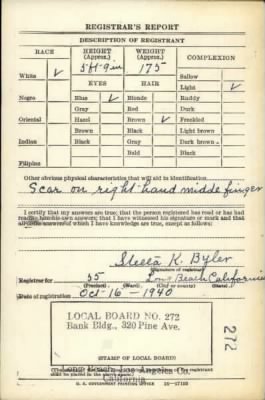 REGISTRAR'S REPORT
DESCRIPTION OF REGISTRANT
RACE HEIGHT (Approx.) WEIGHT (Approx.) COMPLEXION
White ✓ 5ft-9in 175 Sallow
EYES HAIR Light ✓
Negro Blue ✓ Blonde Ruddy
Gray Red Dark
Oriental Hazel Brown ✓ Freckled
Brown Black Light brown
Indian Black Gray Dark brown
Bald Black
Filipino
Other obvious physical characteristics that will aid in identification
Scar on right hand middle finger
I certify that my answers are true; that the person registered has read or has had
read to him his own answers; that I have witnessed his signature or mark and that
all of his answers of which I have knowledge are true, except as follows:
Steeta K. Byler
(Signature of registrar)
Registrar for 55 Long Beach California
(Precinct) (Ward) (City or county) (State)
Date of registration Oct-16-1940
LOCAL BOARD NO. 272
Bank Bldg., 320 Pine Ave.
272
(STAMP OF LOCAL BOARD)
Long Beach, Los Angeles Co.
California
U. S. GOVERNMENT PRINTING OFFICE 16-17105